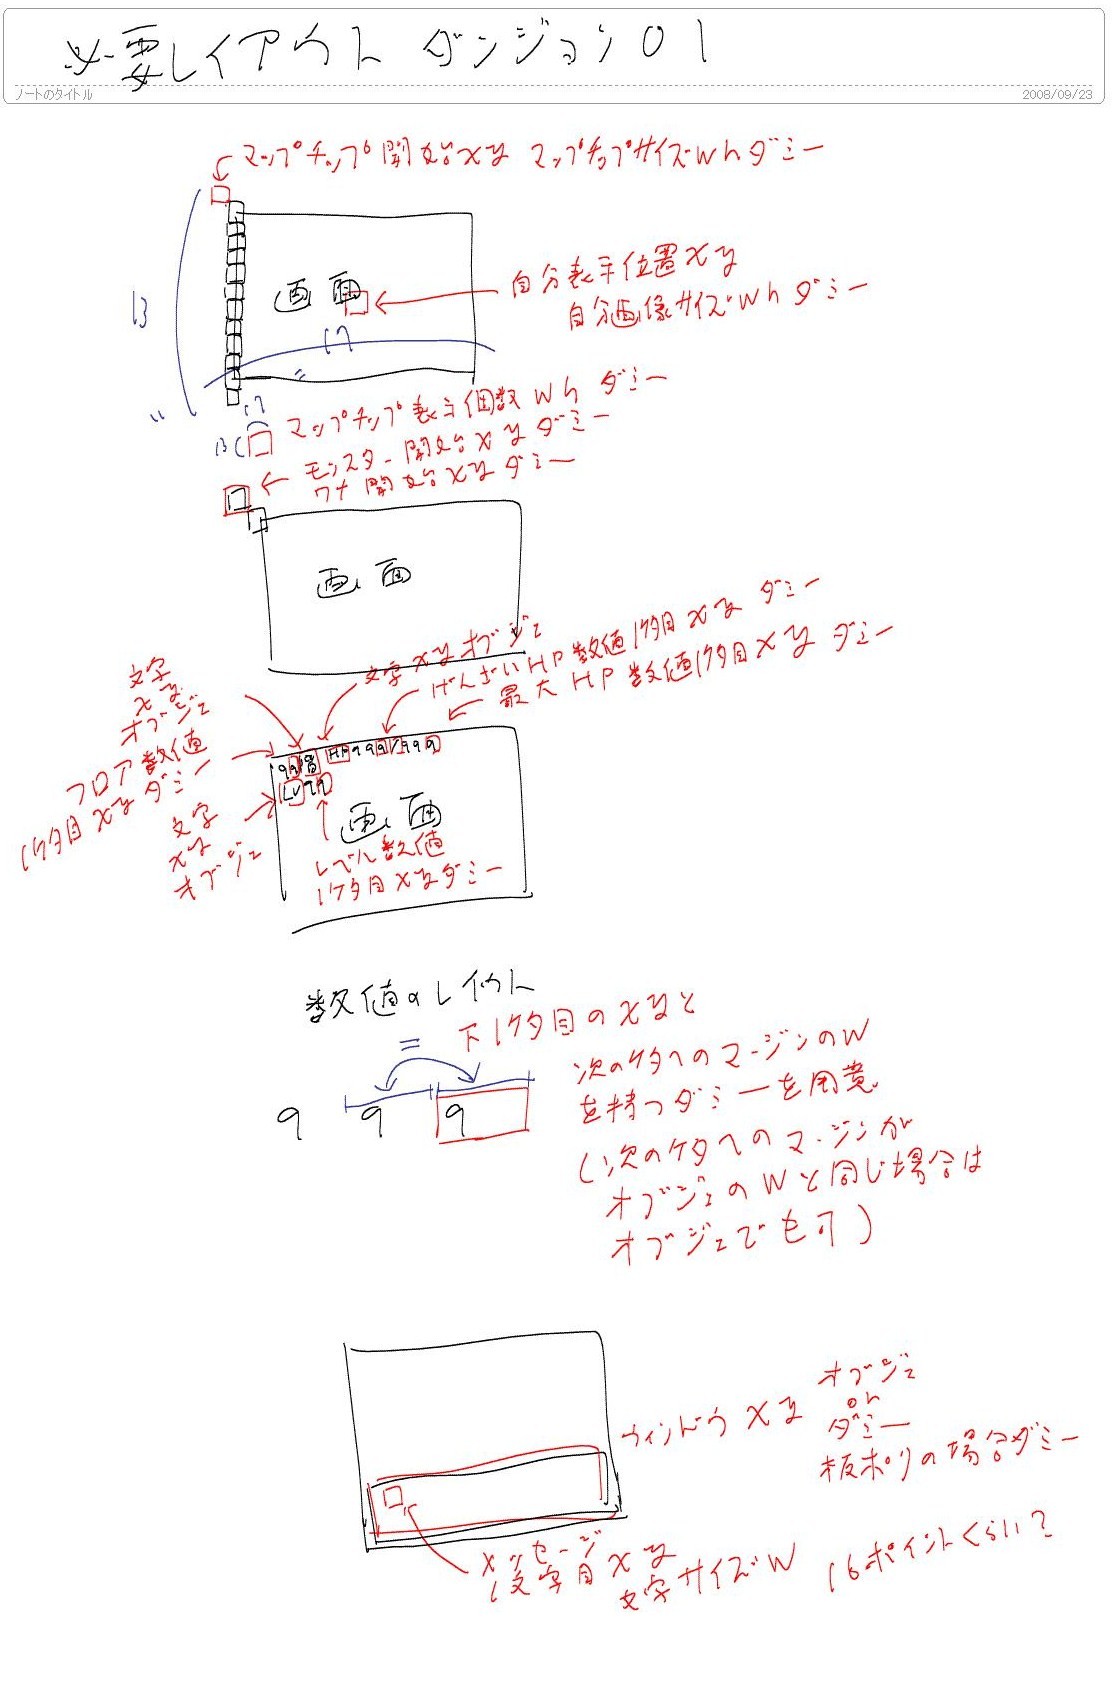 必要レイアウト ダンジョン01
ノートのタイトル
2008/09/23
マップチップ開始xy マップチップサイズwhダミー
画面
自分表示位置xy
自分画像サイズwhダミー
13
17
=
17
13
マップチップ表示個数whダミー
モンスター開始xyダミー
ワナ開始xyダミー
画面
文字xyオブジェ
げんざいHP数値1ケタ目xyダミー
最大HP数値1ケタ目xyダミー
文字
xy
オブジェ
フロア数値
1ケタ目xyダミー
文字
xy
オブジェ
99階 HP999/999
LV99
画面
レベル数値
1ケタ目xyダミー
数値のレイアウト
下1ケタ目のxyと
次のケタへのマージンのW
を持つダミーを用意
(次のケタへのマージンが
オブジェのWと同じ場合は
オブジェでも可)
=
9 9 9
ウィンドウxy
オブジェ
or
ダミー
板ポリの場合ダミー
メッセージ
1文字目xy
文字サイズW 16ポイントくらい?